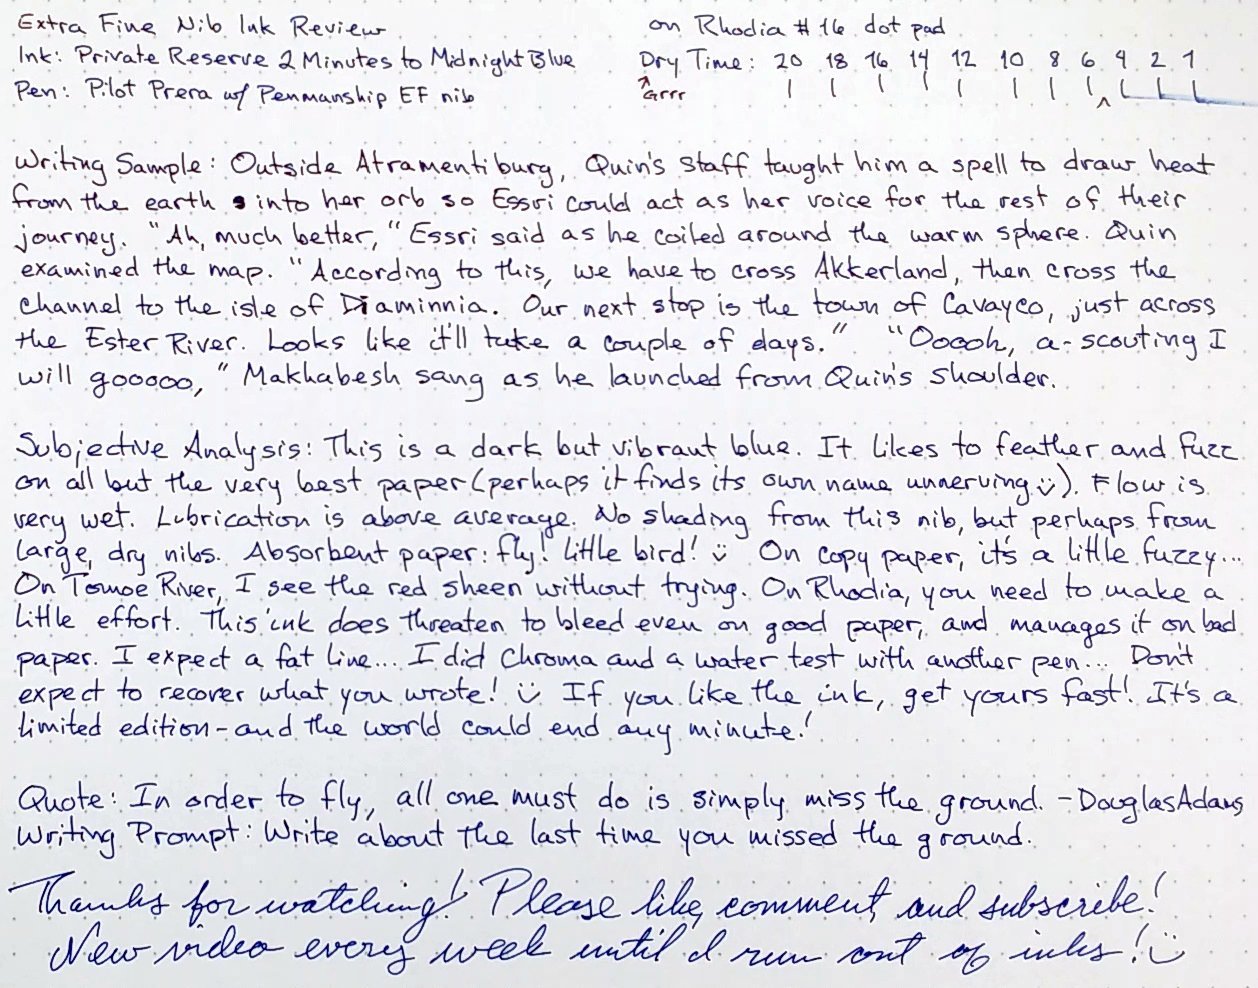 Extra Fine Nib Ink Review on Rhodia #16 dot pad
Ink: Private Reserve 2 Minutes to Midnight Blue Dry Time: 20 18 16 14 12 10 8 6 4 2 1
Pen: Pilot Prera w/ Penmanship EF nib Grrr
Writing Sample: Outside Atramentiburg, Quin's staff taught him a spell to draw heat
from the earth into her orb so Essri could act as her voice for the rest of their
journey. "Ah, much better," Essri said as he coiled around the warm sphere. Quin
examined the map. "According to this, we have to cross Akkerland, then cross the
channel to the isle of Diaminnia. Our next stop is the town of Cavayco, just across
the Ester River. Looks like it'll take a couple of days." "Ooooh, a-scouting I
will gooooo," Makhabesh sang as he launched from Quin's shoulder.
Subjective Analysis: This is a dark but vibrant blue. It likes to feather and fuzz
on all but the very best paper (perhaps it finds its own name unnerving ü). Flow is
very wet. Lubrication is above average. No shading from this nib, but perhaps from
large, dry nibs. Absorbent paper: fly! little bird! ü On copy paper, it's a little fuzzy...
On Tomoe River, I see the red sheen without trying. On Rhodia, you need to make a
little effort. This ink does threaten to bleed even on good paper, and manages it on bad
paper. I expect a fat line... I did Chroma and a water test with another pen... Don't
expect to recover what you wrote! Ü If you like the ink, get yours fast! It's a
limited edition - and the world could end any minute!
Quote: In order to fly, all one must do is simply miss the ground. - Douglas Adams
Writing Prompt: Write about the last time you missed the ground.
Thanks for watching! Please like, comment, and subscribe!
New video every week until I run out of inks! Ü